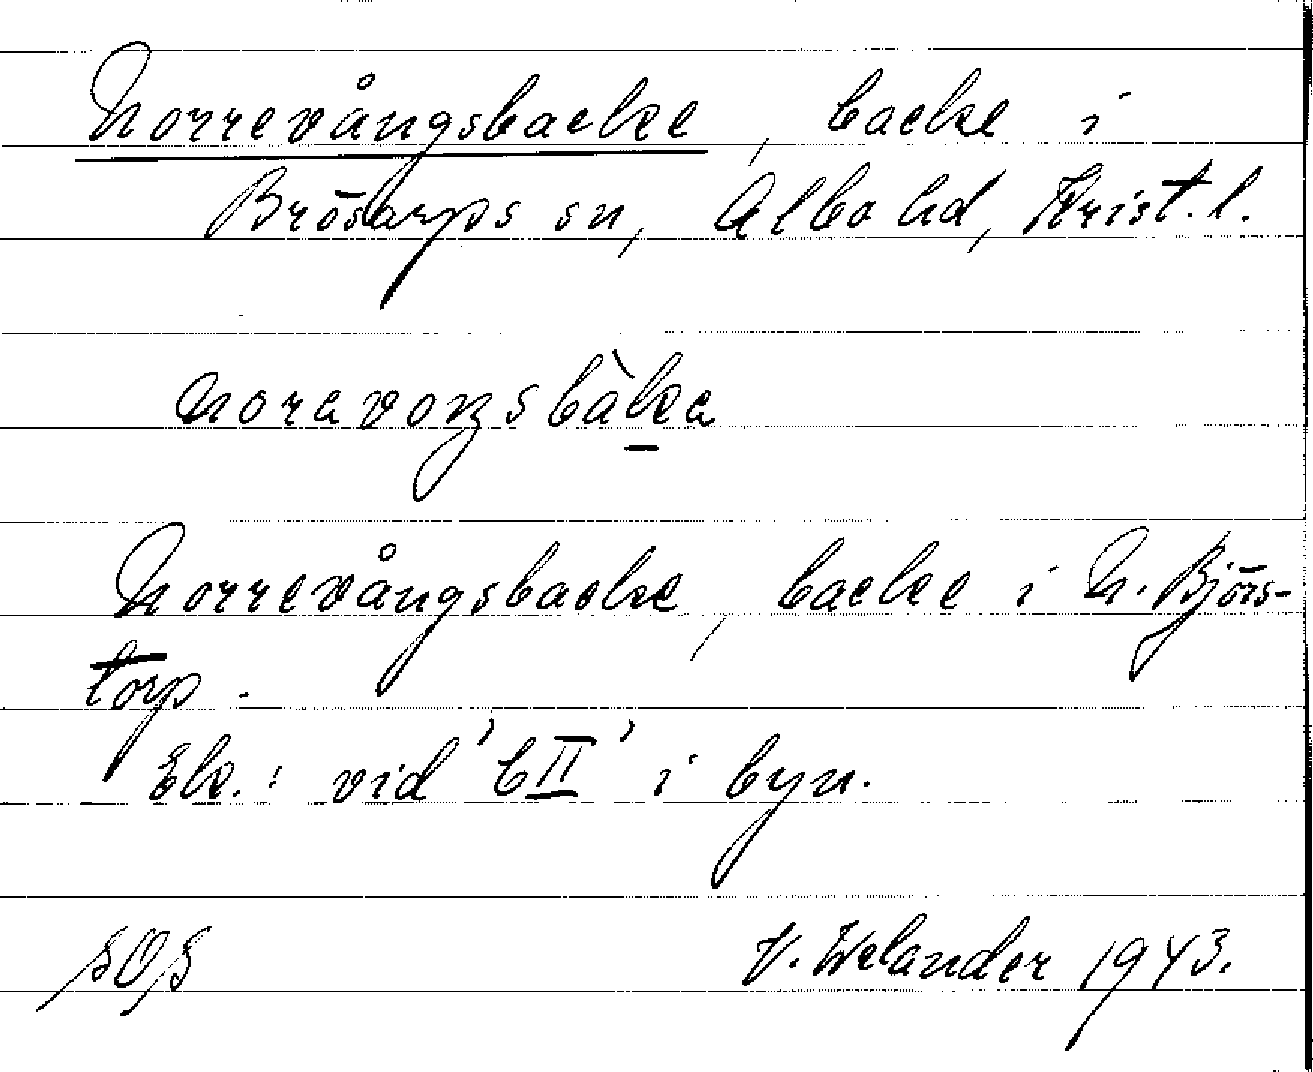 Norrevångsbacke, backe i
Brösarps sn, Albo hd, Krist. l.
noravoŋsbàka
Norrevångsbacke, backe i N. Björs-
torp.
Ek.: vid 'bII' i byn.
SOS V. Welander 1943.